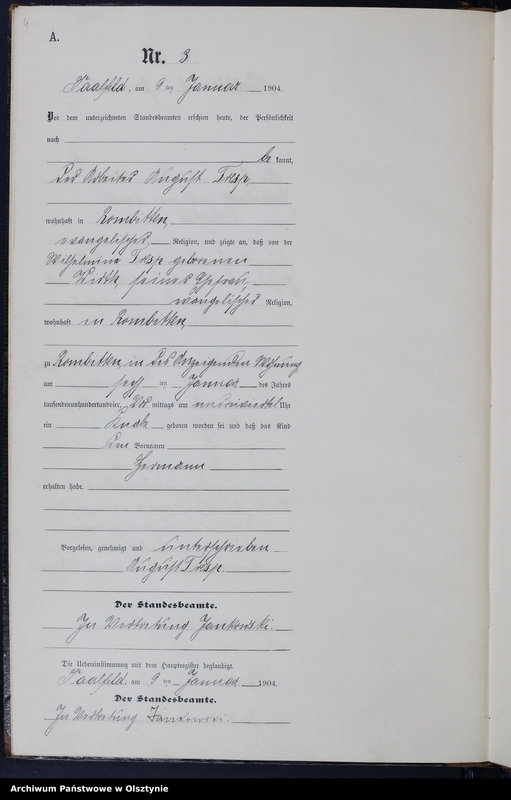 A.
Nr. 3
Saalfeld, am 9 ten Januar 1904.
Vor dem unterzeichneten Standesbeamten erschien heute, der Persönlichkeit
nach
be kannt,
der Arbeiter August Tresp,
wohnhaft in Rombitten,
evangelischer Religion, und zeigte an, daß von der
Wilhelmine Tresp geborenen
seiner Ehefrau,
evangelischer Religion,
wohnhaft in Rombitten,
zu Rombitten, in des Anzeigenden Wohnung
am ten Januar des Jahres
tausendneunhundertundvier, Vor mittags um Uhr
ein Knabe geboren worden sei und daß das Kind
den Vornamen
Hermann
erhalten habe.
Vorgelesen, genehmigt und unterschrieben
August Tresp
Der Standesbeamte.
In Vertretung Jankowski.
Die Uebereinstimmung mit dem Hauptregister beglaubigt.
Saalfeld, am 9 ten Januar 1904.
Der Standesbeamte.
In Vertretung Jankowski.
Archiwum Państwowe w Olsztynie